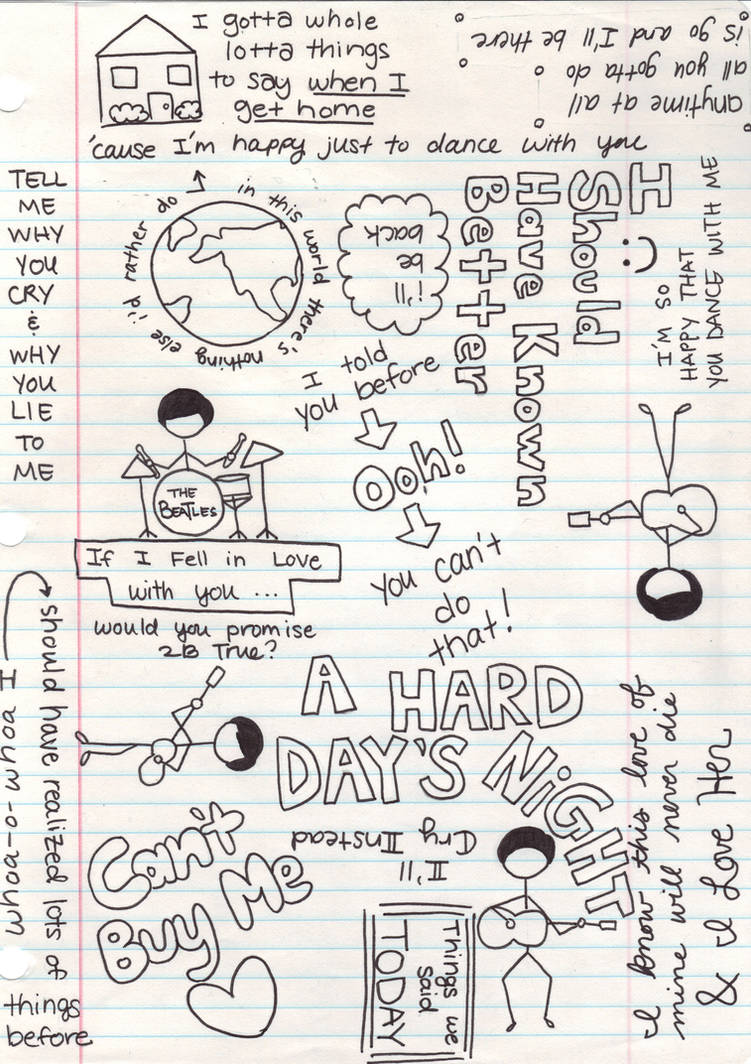 I gotta whole
lotta things
to say when I
get home
anytime at all
all you gotta do
is go and I'll be there
'cause I'm happy just to dance with you
TELL
ME
WHY
YOU
CRY
&
WHY
YOU
LIE
TO
ME
in this world there's nothing else i'd rather do
i'll
be
back
I
Should
Have Known
Better
I'M SO
HAPPY THAT
YOU DANCE WITH ME
I told
you before
Ooh!
you can't
do
that!
THE
BEATLES
If I Fell in Love
with you ...
would you promise
2B True?
whoa-o-whoa I
should have realized lots of
things
before
A HARD
DAY'S NiGHT
I'll
Cry Instead
Can't
Buy Me
Things we
said
TODAY
I know this love of
mine will never die
& I Love Her